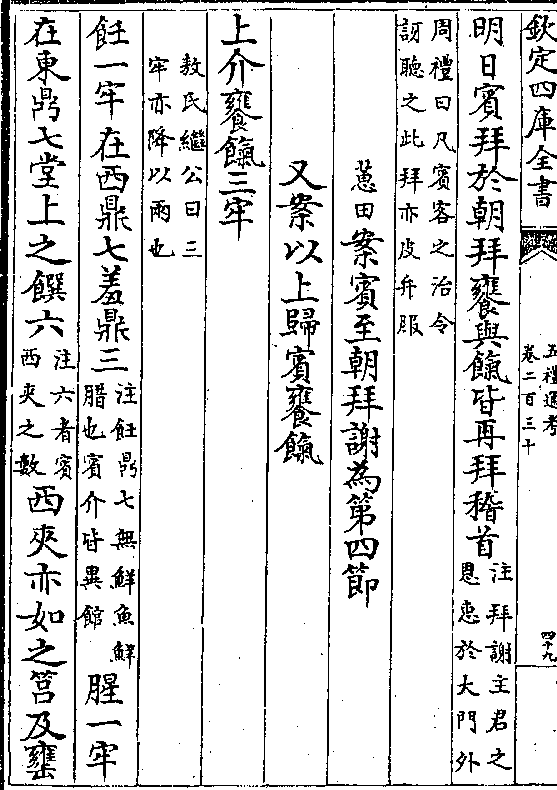 欽定四庫全書
五禮通考
卷二百三十
四十九
明日賓拜於朝拜饔與餼皆再拜稽首注拜謝主君之恩惠於大門外
周禮曰凡賓客之治令訝聽之此拜亦皮弁服
蕙田案賓至朝拜謝為第四節
又案以上歸賓饔餼
上介饔餼三牢
敖氏繼公曰三牢亦降以兩也
飪一牢在西鼎七羞鼎三注飪鼎七無鮮魚鮮腊也賓介皆異館腥一牢
在東鼎七堂上之饌六注六者賓西夾之數西夾亦如之筥及罋